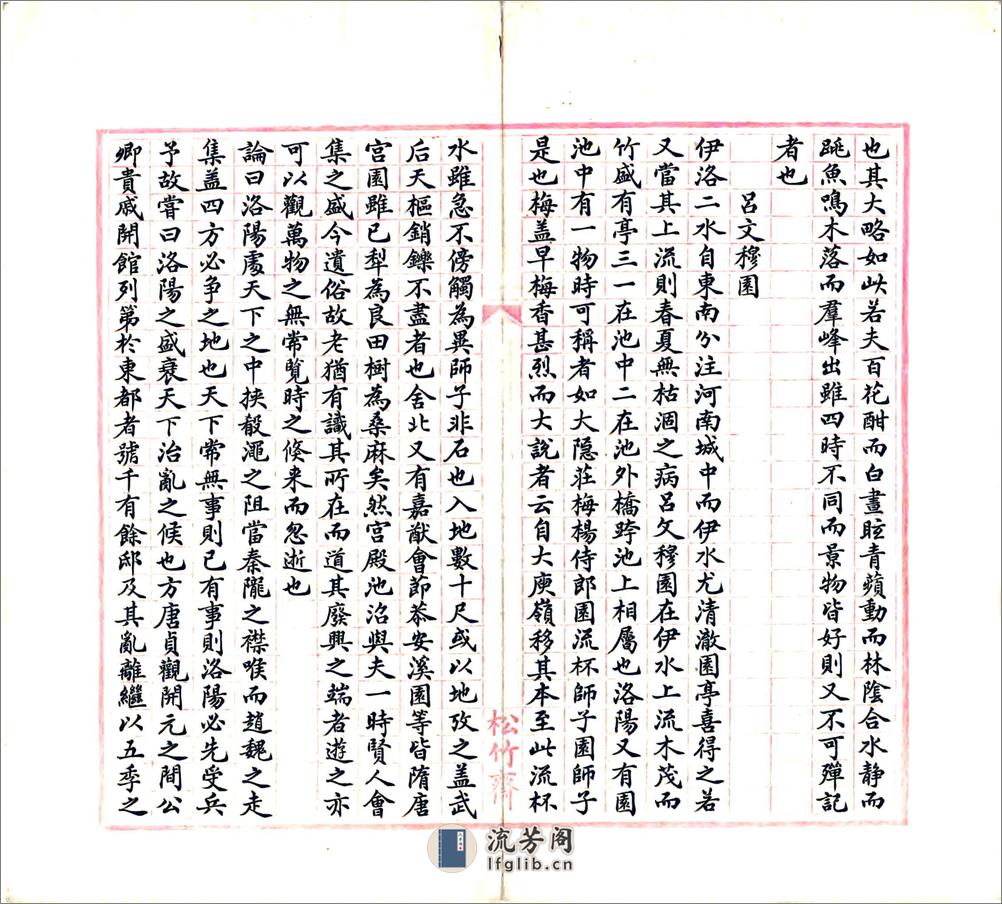 也其大略如此若夫百花酣而白晝眩青蘋動而林陰合水静而
跳魚鳴木落而羣峰出雖四時不同而景物皆好則又不可殫記
者也
呂文穆園
伊洛二水自東南分注河南城中而伊水尤清澈園亭喜得之若
又當其上流則春夏無枯涸之病呂文穆園在伊水上流木茂而
竹盛有亭三一在池中二在池外橋跨池上相屬也洛陽又有園
池中有一物時可稱者如大隱莊梅楊侍郎園流杯師子園師子
是也梅盖早梅香甚烈而大說者云自大庾嶺移其本至此流杯
水雖急不傍觸為異師子非石也入地數十尺或以地攷之盖武
后天樞銷鑠不盡者也舍此又有嘉猷會節恭安溪園等皆隋唐
宮園雖已犁為良田樹為桑麻矣然宮殿池沼與夫一時賢人會
集之盛今遺俗故老猶有識其所在而道其廢興之端者遊之亦
可以觀萬物之無常覽時之倏来而忽逝也
論曰洛陽處天下之中挾殽澠之阻當秦隴之襟喉而趙魏之走
集盖四方必争之地也天下常無事則已有事則洛陽必先受兵
予故嘗曰洛陽之盛衰天下治亂之候也方唐貞觀開元之間公
卿貴戚開館列第於東都者號千有餘邸及其亂離繼以五季之
松竹齋
流芳阁
lfglib.cn